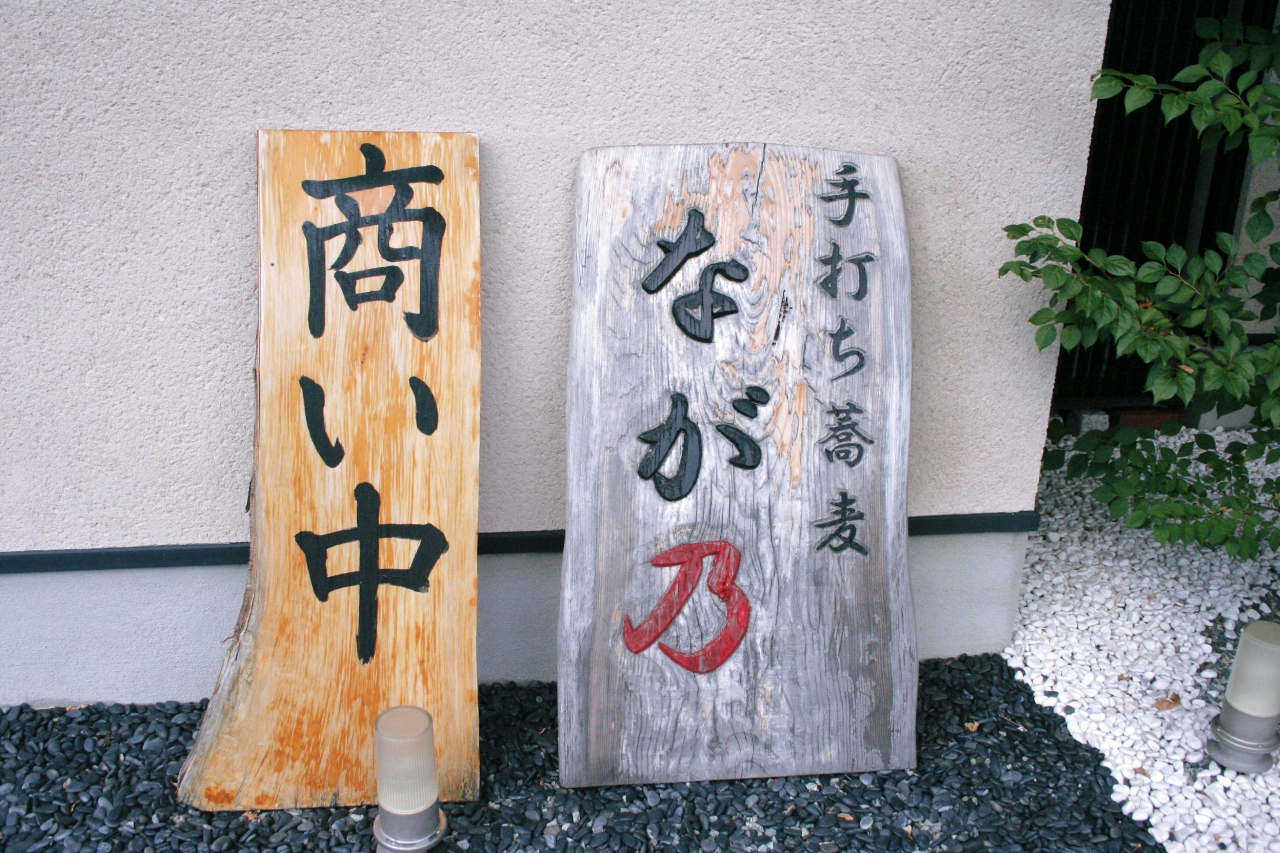 商い中
手打ち蕎麦
なが乃